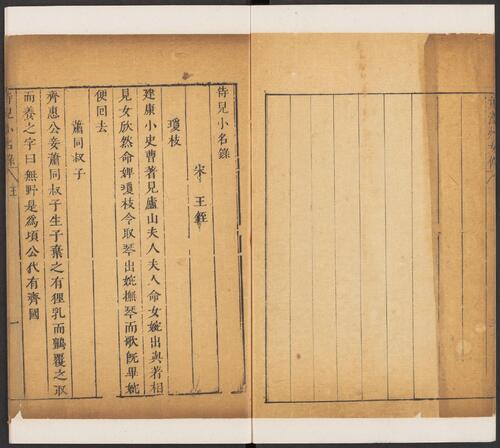 侍兒小名錄
宋 王銍
瓊枝
建康小史曹著見廬山夫人夫人命女婉出與著相
見女欣然命婢瓊枝令取琴出婉撫琴而歌既畢婉
便回去
蕭同叔子
齊惠公妾蕭同叔子生子棄之有狸乳而鸇覆之取
而養之字曰無野是為頃公代有齊國
侍兒小名錄 王 一